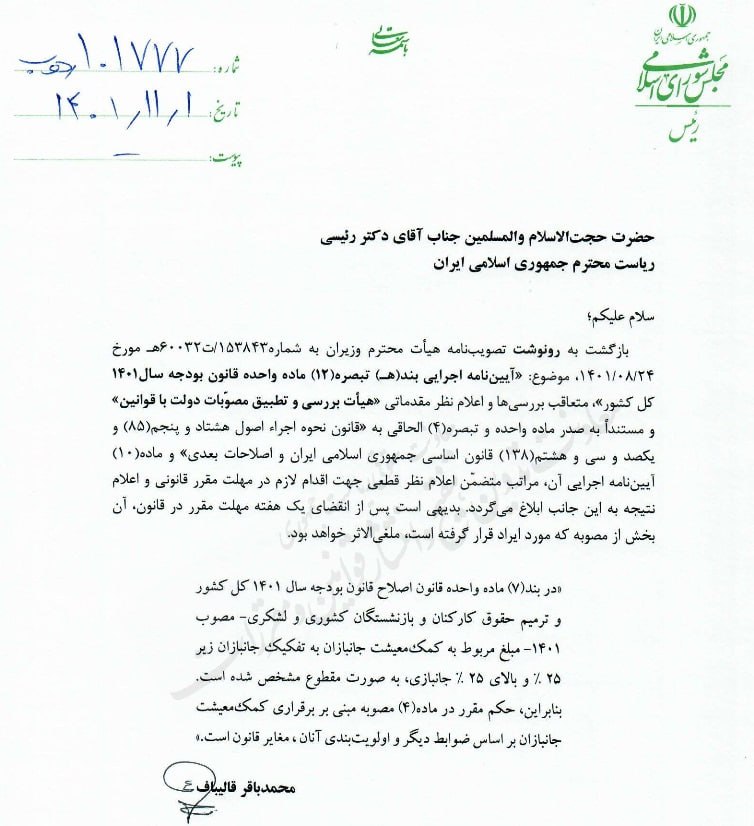 باسمه تعالی
جمهوری اسلامی ایران
مجلس شورای اسلامی
رئیس
شماره: ۱۰۱۷۷۷
تاریخ: ۱۴۰۱/۱۱/۱
پیوست: –
حضرت حجت‌الاسلام والمسلمین جناب آقای دکتر رئیسی
ریاست محترم جمهوری اسلامی ایران
سلام علیکم؛
بازگشت به رونوشت تصویب‌نامه هیأت محترم وزیران به شماره۱۵۳۸۴۳/ت۶۰۰۳۲هـ مورخ
۱۴۰۱/۰۸/۲۴، موضوع: «آیین‌نامه اجرایی بند(هـ) تبصره(۱۲) ماده واحده قانون بودجه سال۱۴۰۱
کل کشور»، متعاقب بررسی‌ها و اعلام نظر مقدماتی «هیأت بررسی و تطبیق مصوّبات دولت با قوانین»
و مستنداً به صدر ماده واحده و تبصره(۴) الحاقی به «قانون نحوه اجراء اصول هشتاد و پنجم(۸۵) و
یکصد و سی و هشتم(۱۳۸) قانون اساسی جمهوری اسلامی ایران و اصلاحات بعدی» و ماده(۱۰)
آیین‌نامه اجرایی آن، مراتب متضمّن اعلام نظر قطعی جهت اقدام لازم در مهلت مقرر قانونی و اعلام
نتیجه به این جانب ابلاغ می‌گردد. بدیهی است پس از انقضای یک هفته مهلت مقرر در قانون، آن
بخش از مصوبه که مورد ایراد قرار گرفته است، ملغی‌الاثر خواهد بود.
«در بند(۷) ماده واحده قانون اصلاح قانون بودجه سال ۱۴۰۱ کل کشور
و ترمیم حقوق کارکنان و بازنشستگان کشوری و لشکری- مصوب
۱۴۰۱- مبلغ مربوط به کمک‌معیشت جانبازان به تفکیک جانبازان زیر
۲۵ ٪ و بالای ۲۵ ٪ جانبازی، به صورت مقطوع مشخص شده است.
بنابراین، حکم مقرر در ماده(۴) مصوبه مبنی بر برقراری کمک‌معیشت
جانبازان بر اساس ضوابط دیگر و اولویت‌بندی آنان ، مغایر قانون است.»
محمدباقر قالیباف